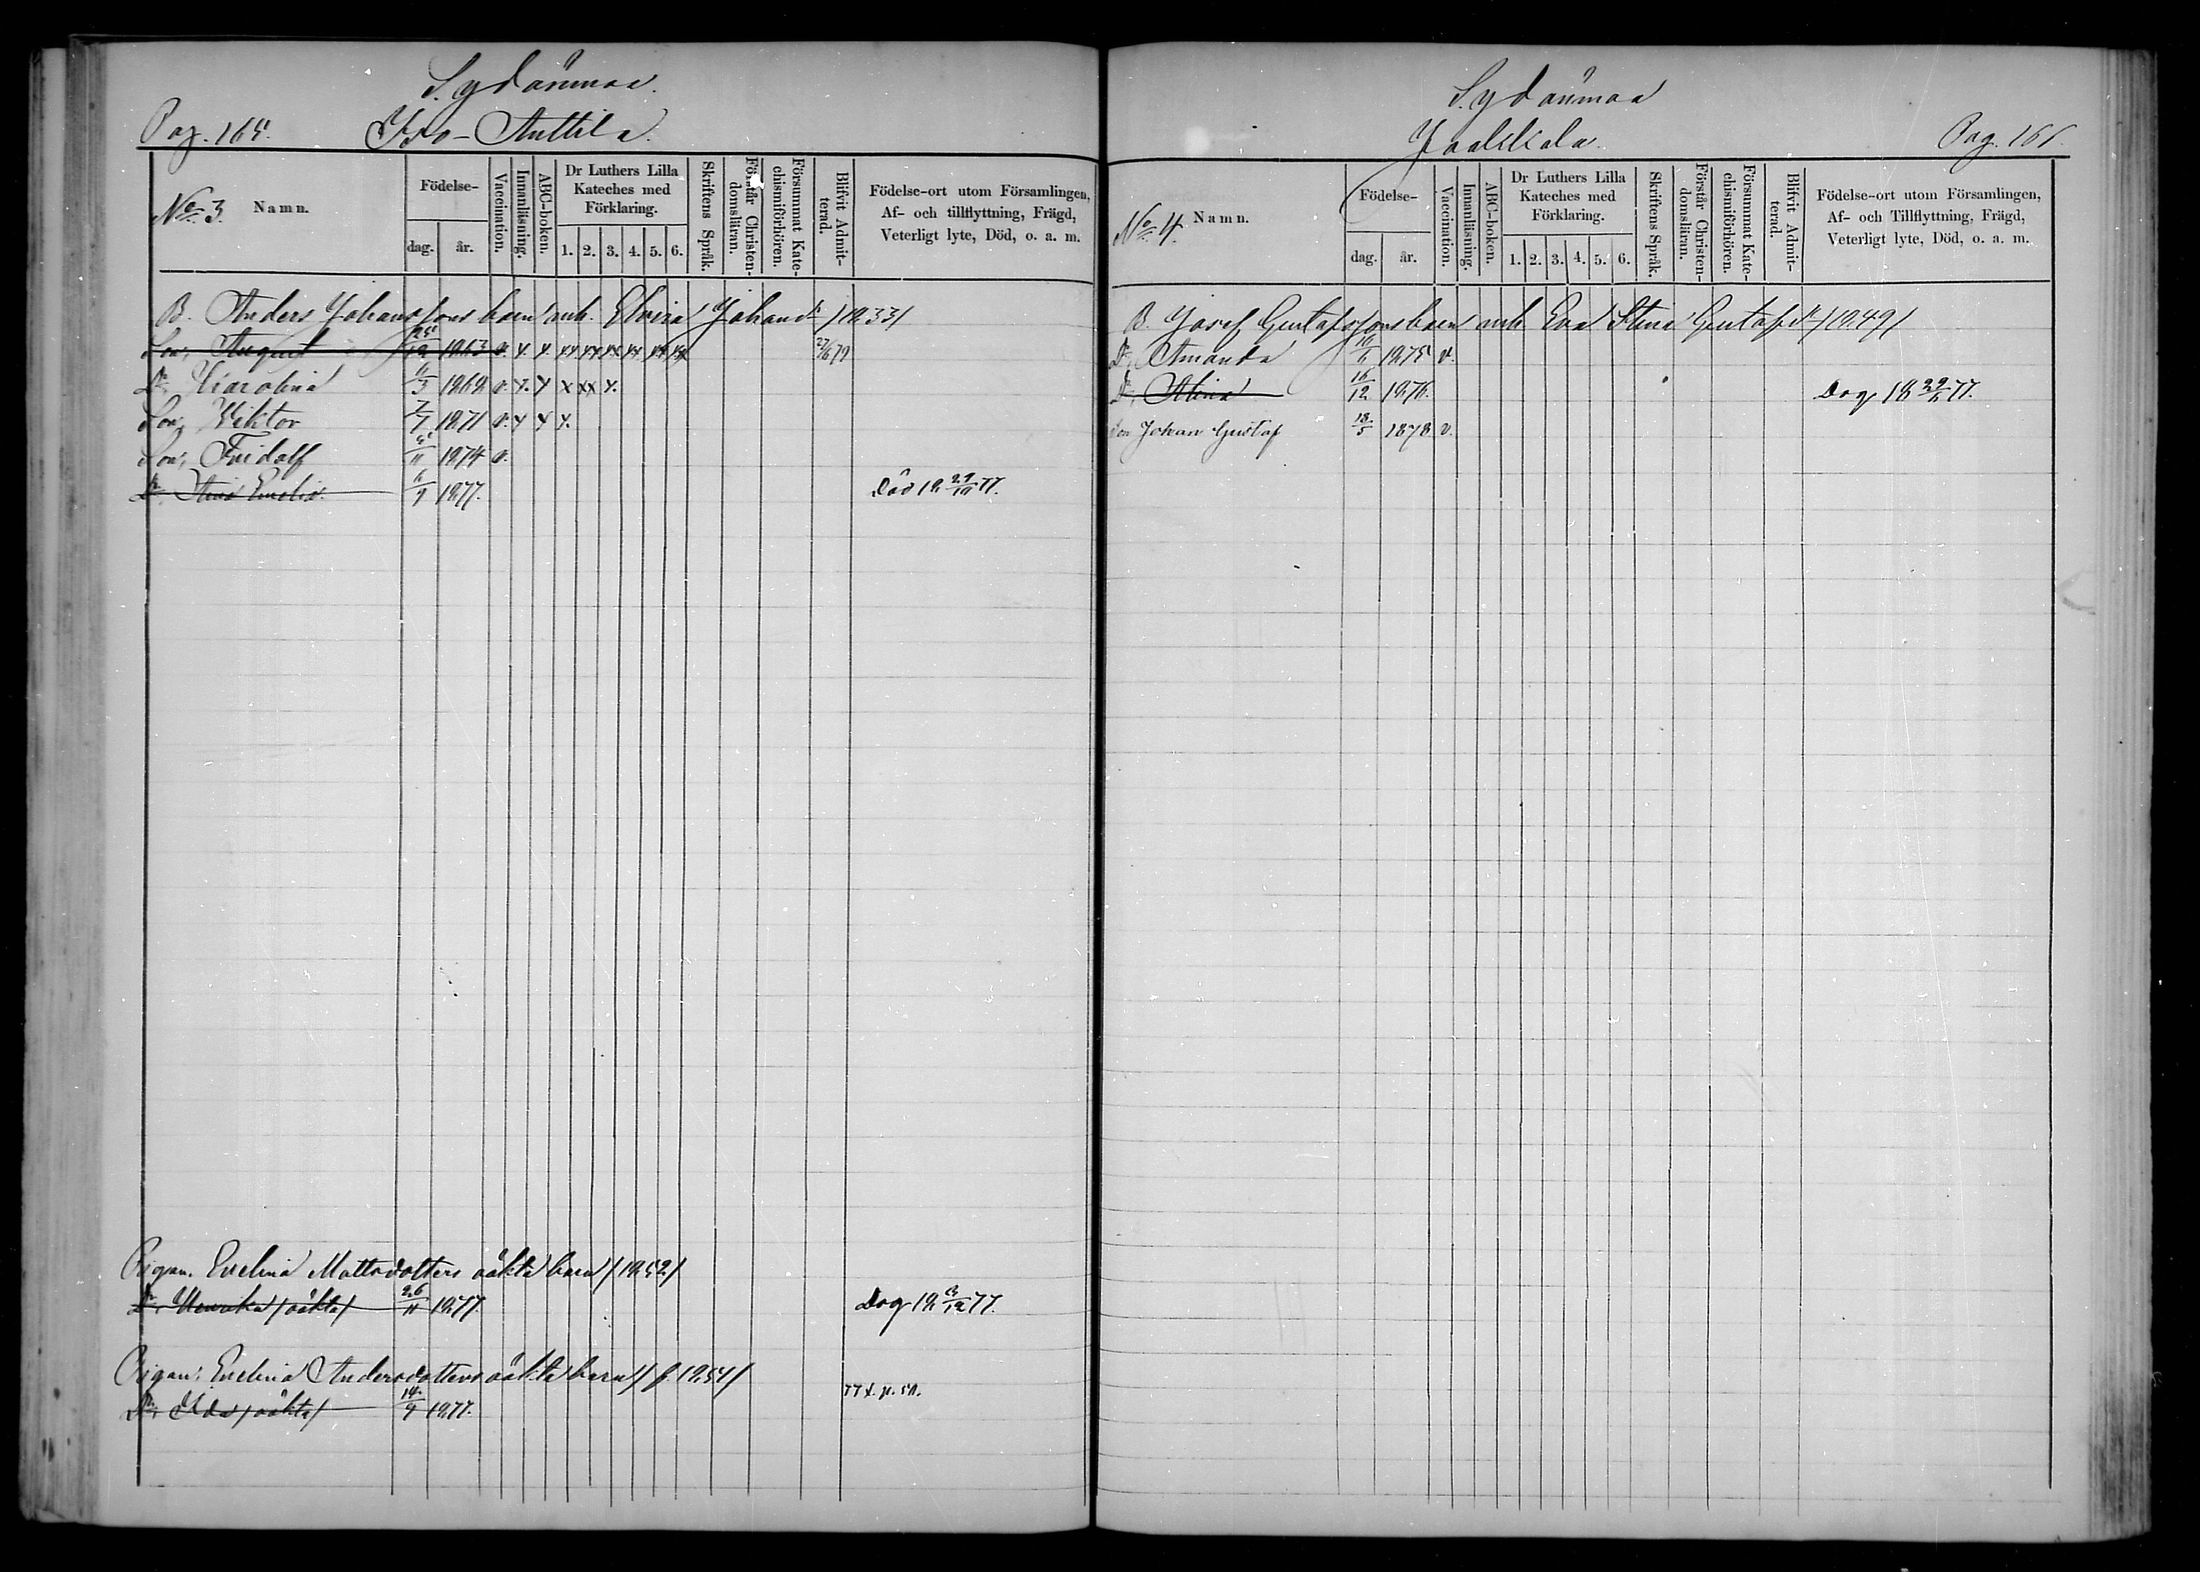 Sydänmaa.
Pag. 165. Iso-Anttila.
No 3. Namn. Födelse- dag. år. Vaccination. Innanläsning. ABC-boken. Dr Luthers Lilla Kateches med Förklaring. 1. 2. 3. 4. 5. 6. Skriftens Språk. Förstår Christendomsläran. Försummat Katechismiförhören. Blifvit Admitterad. Födelse-ort utom Församlingen, Af- och tillflyttning, Frägd, Veterligt lyte, Död, o. a. m.
B. Anders Johanssons barn mh. Elvira Johansdr /1833/
Son, August 25/12 1863 v. x. x xx xx xx xx xx xx 22/6 79
Dr, Karolina 6/3 1869 v. x. x x xx x.
Son, Wiktor 7/7 1871 v. x x x.
Son, Fridolf 1874 v.
Dr, Stina Emelia 1877. Död 18 29/10 77.
Pigan. Evelina Mattsdotters oäkta barn /1852/
Dr, Henrika /oäkta/ 26/11 1877. Dog 18 77.
Pigan, Evelina Andersdotters oäkta barn /f. 1854/
Dr, Ida /oäkta/ 14/9 1877.
Sydänmaa
Jaakkola. Pag. 166.
No 4. Namn. Födelse- dag. år. Vaccination. Innanläsning. ABC-boken. Dr Luthers Lilla Kateches med Förklaring. 1. 2. 3. 4. 5. 6. Skriftens Språk. Förstår Christendomsläran. Försummat Katechismiförhören. Blifvit Admitterad. Födelse-ort utom Församlingen, Af- och Tillflyttning, Frägd, Veterligt lyte, Död, o. a. m.
B. Josef Gustafssons barn mh. Eva Stina Gustafsdr /1849/
Dr, Amanda 1875 v.
Dr, Alina 16/12 1876. Dog 18 77.
Son Johan Gustaf 18/5 1878 v.